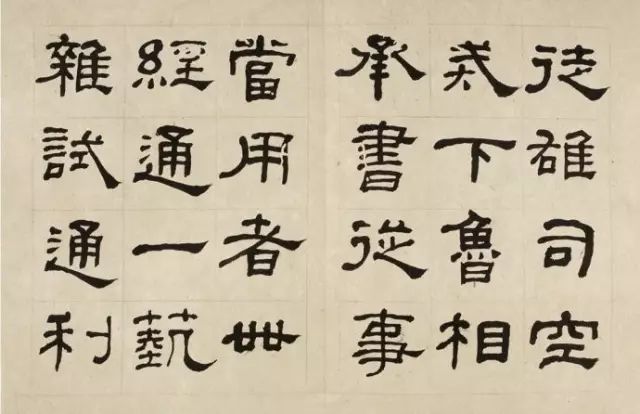 徒雄司空
戒下魯相
承書從事
當用者卌
經通一蓺
雜試通利